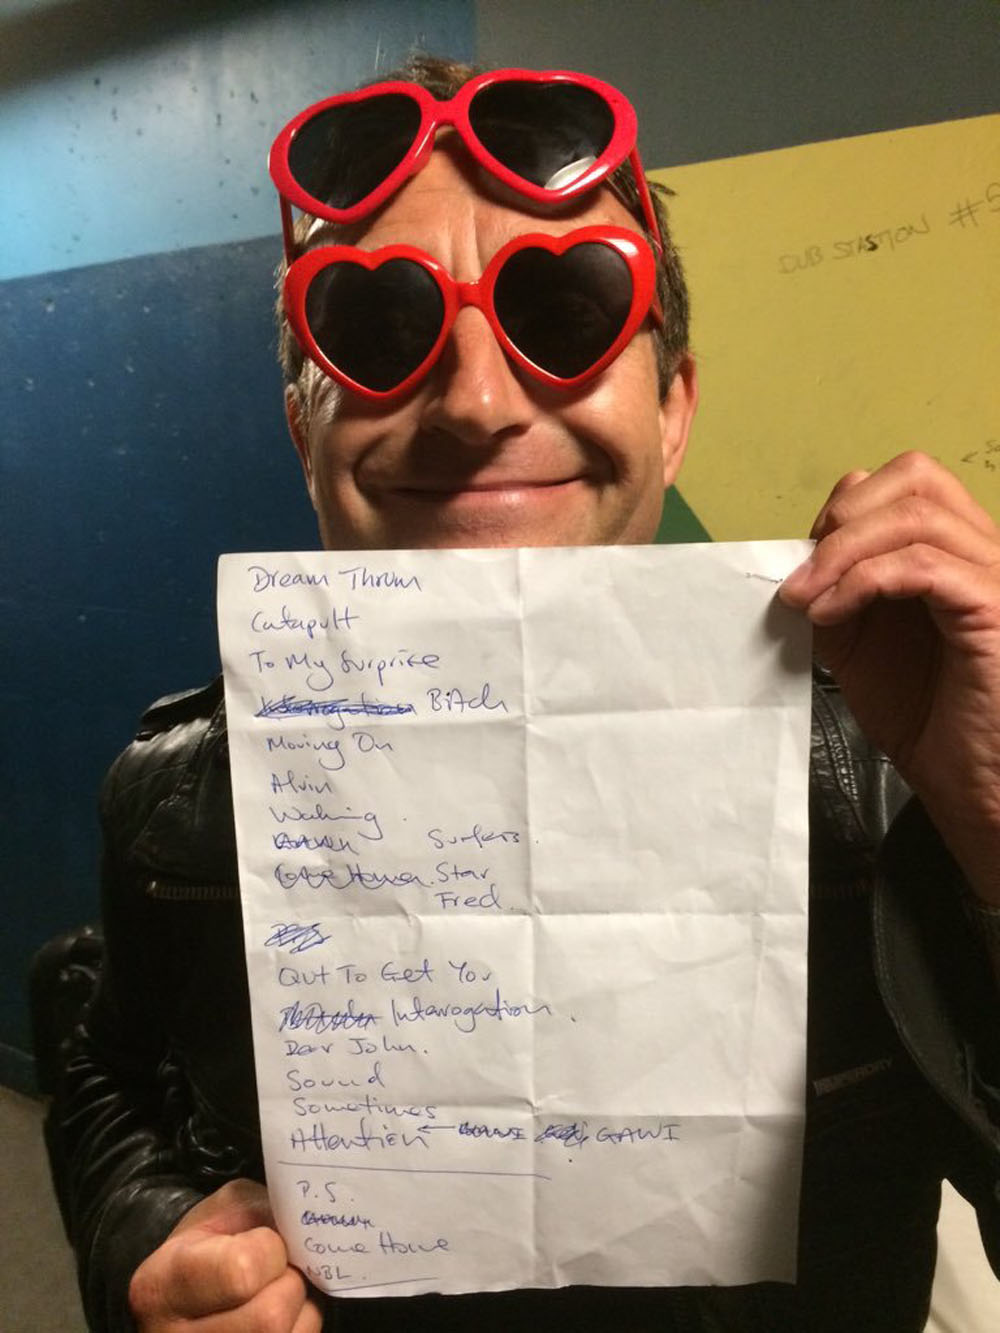 DUB STASTION #5
Dream Thrum
Catapult
To My Surprise
Bitch
Moving On
Alvin
Waking
Surfers.
Come Home. Star
Fred.
Out To Get You
Interogation.
Dear John.
Sound
Sometimes
Attention ← GAWI
P.S.
Come Home
NBL.